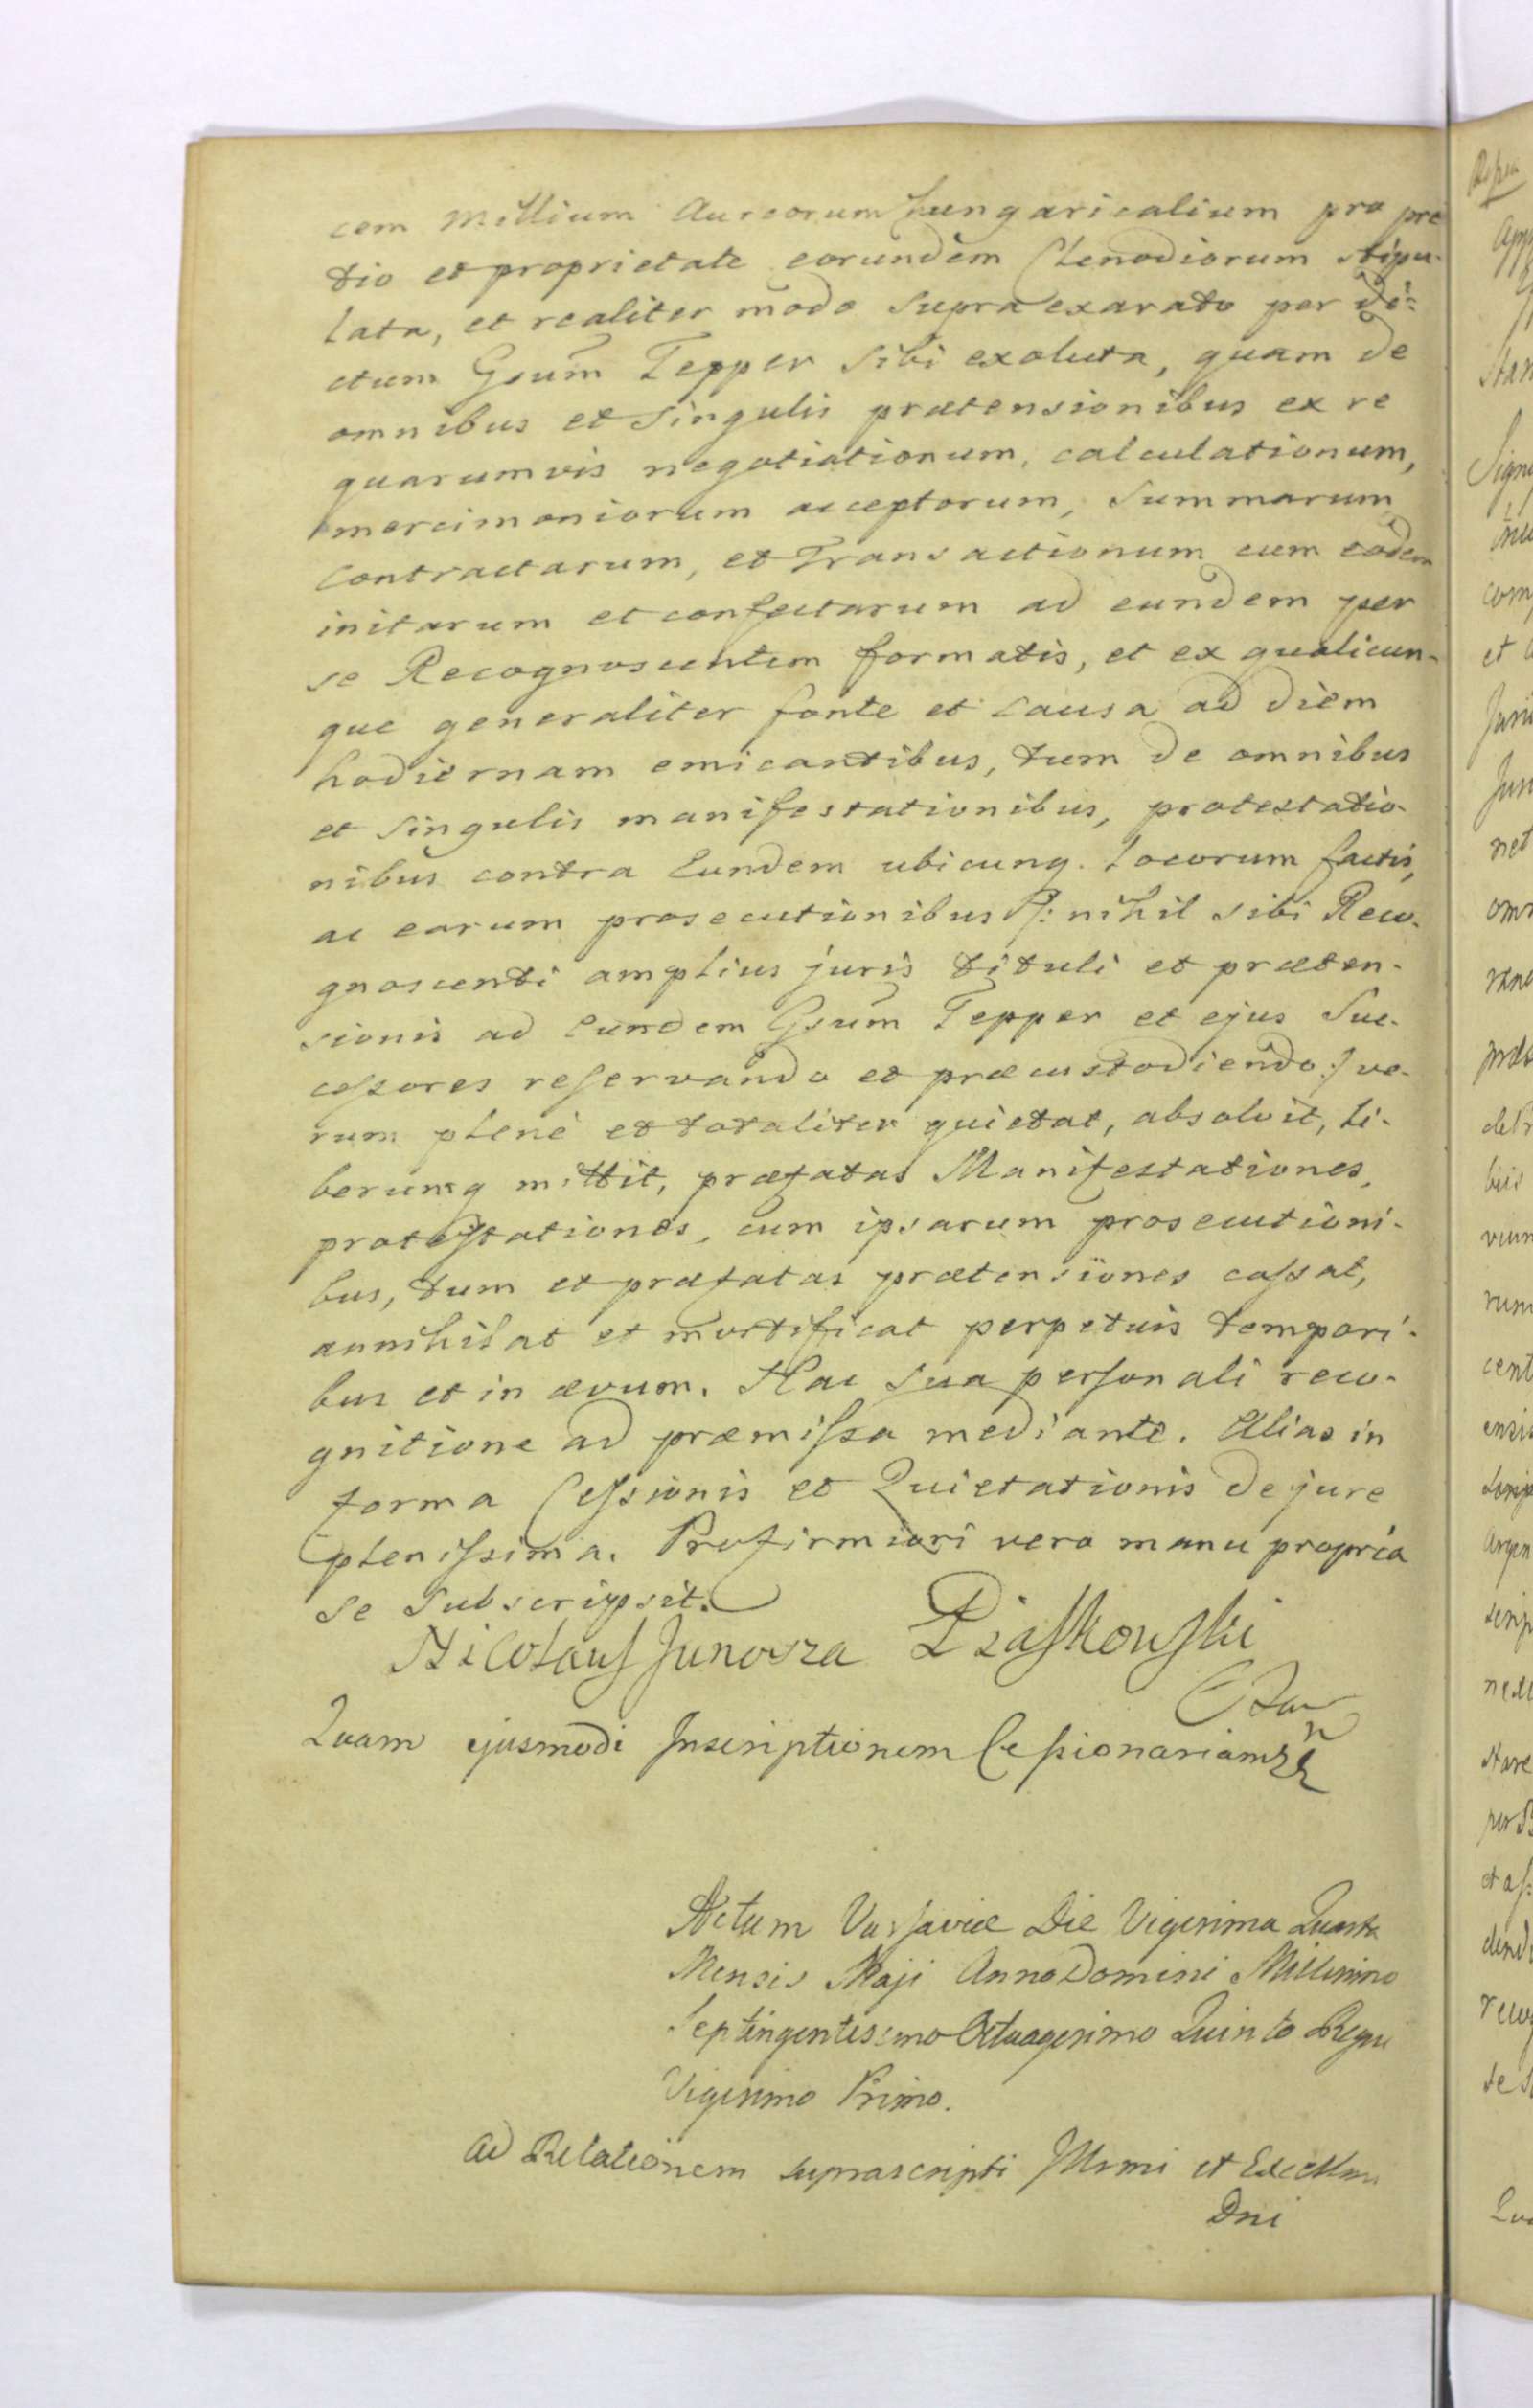 cem Millium Aureorum hungaricalium pro pre
tio et proprietate eorundem Clenodiorum stipu-
lata, et realiter modo supra exarato per di-
ctum Gsum Tepper sibi exoluta, quam de
omnibus et singulis prætensionibus ex re
quarumvis negotiationum, calculationum,
mercimoniorum acceptorum, summarum
contractarum, et Transactionum cum eodem
initarum et confectarum ad eundem per
se Recognoscentem formatis, et ex qualicun-
que generaliter fonte et causa ad diem
hodiernam emicantibus, tum de omnibus
et singulis manifestationibus, protestatio-
nibus contra Eundem ubicunq. Locorum factis,
ac earum prosecutionibus /: nihil sibi Reco-
gnoscenti amplius juris tituli et præten-
sionis ad Eundem Gsum Tepper et ejus Suc-
cessores reservando et præcustodiendo :/ ve-
rum plenè et totaliter quietat, absolvit, li-
berumq mittit, præfatas Manifestationes,
protestationes, cum ipsarum prosecutioni-
bus, tum et præfatas prætensiones cassat,
annihilat et mortificat perpetuis tempori-
bus et in ævum. Hac sua personali reco-
gnitione ad præmissa mediante. Alias in
forma Cessionis et Quietationis de jure
plenissima. Pro firmiori vero manu propria
se subscripsit.
Nicolaus Junosza Piaskowski
Quam ejusmodi Inscriptionem Cessionariam
Actum Varsaviæ Die Vigesima Quarta
Mensis Maji Anno Domini Millesimo
Septingentesimo Octuagesimo Quinto Regni
Vigesimo Primo.
Ad Relationem suprascripti Illrmi et Excellmi
Dni